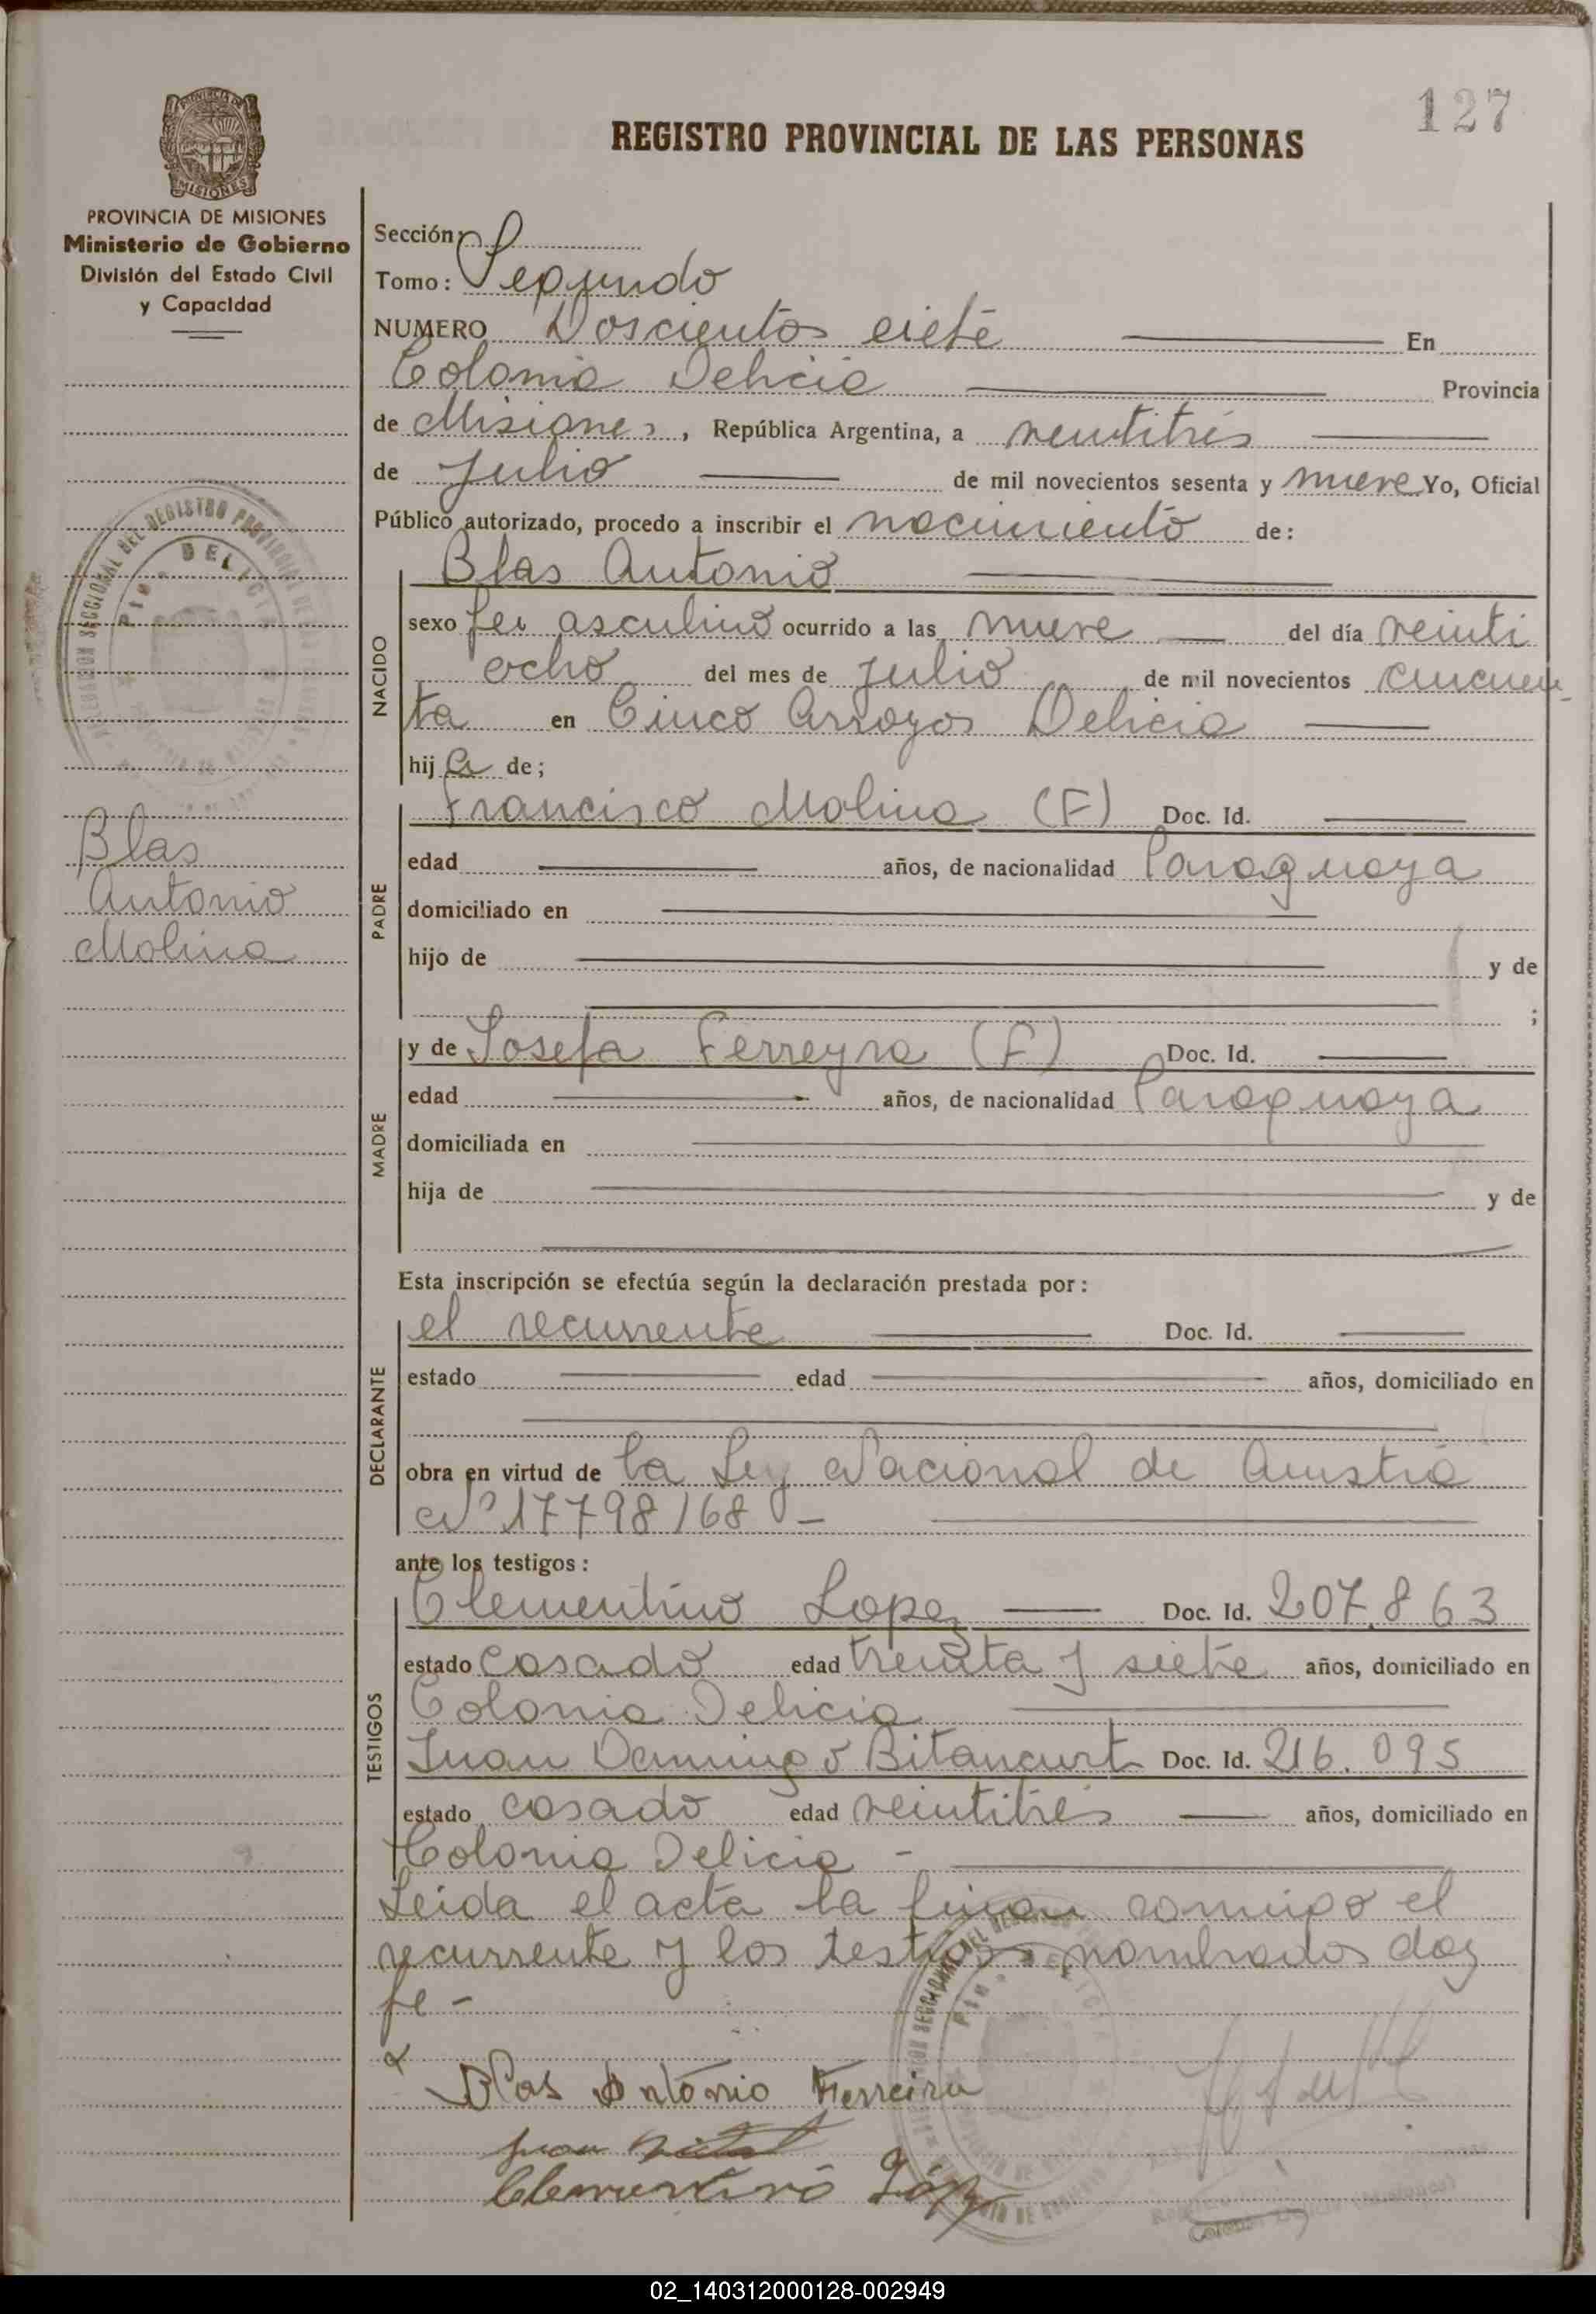 127
REGISTRO PROVINCIAL DE LAS PERSONAS
PROVINCIA DE MISIONES
MISIONES
PROVINCIA DE MISIONES
Ministerio de Gobierno
División del Estado Civil
y Capacidad
Sección:
Tomo: Segundo
NUMERO Doscientos siete En
Colonia Delicia Provincia
de Misiones, República Argentina, a veintitrés
de Julio de mil novecientos sesenta y nueve Yo, Oficial
Público autorizado, procedo a inscribir el nacimiento de:
Blas Antonio
NACIDO
sexo asculino ocurrido a las nueve del día veinti
ocho del mes de Julio de mil novecientos cincuen
ta en Cinco Arroyos Delicia
hij de;
Blas
Antonio
Molina
PADRE
Francisco Molina (F) Doc. Id.
edad años, de nacionalidad Paraguaya
domiciliado en
hijo de y de
;
MADRE
y de Josefa Ferreyra (F) Doc. Id.
edad años, de nacionalidad Paraguaya
domiciliada en
hija de y de
Esta inscripción se efectúa según la declaración prestada por:
DECLARANTE
el recurrente Doc. Id.
estado edad años, domiciliado en
obra en virtud de la Ley Nacional de Amistia
Nº 17798/68 -
ante los testigos:
TESTIGOS
Clementino Lopez Doc. Id. 207.863
estado casado edad treinta y siete años, domiciliado en
Colonia Delicia
Juan Domingo Bitancurt Doc. Id. 216.095
estado casado edad veintitrés años, domiciliado en
Colonia Delicia -
Leida el acta la firman conmigo el
recurrente y los testigos nombrados doy
fe -
Blas Antonio Ferreira
Juan
Clementino López
02_140312000128-002949